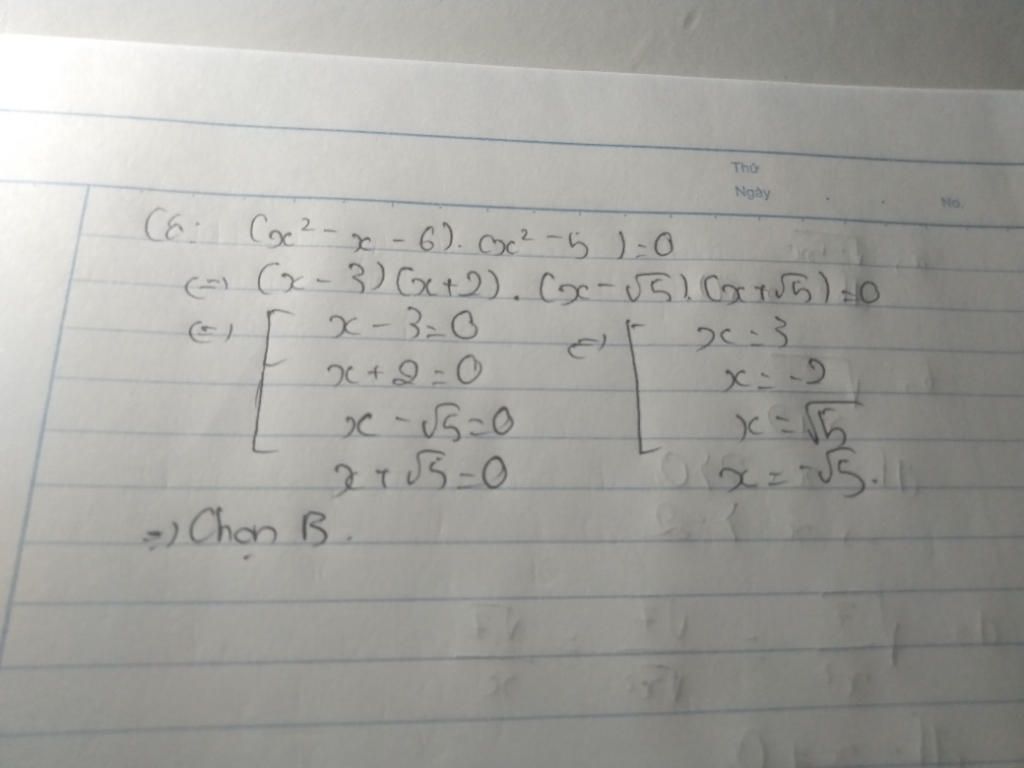 Thứ
Ngày . . No.
C6: (x² - x - 6). (x² - 5) = 0
<=> (x - 3)(x+2). (x - √5).(x+√5) = 0
<=> [ x - 3 = 0 <=> [ x = 3
x + 2 = 0 x = -2
x - √5 = 0 x = √5
x + √5 = 0 x = -√5.
=> Chọn B.